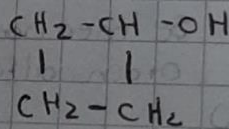 CH2-CH-OH
| |
CH2-CH2